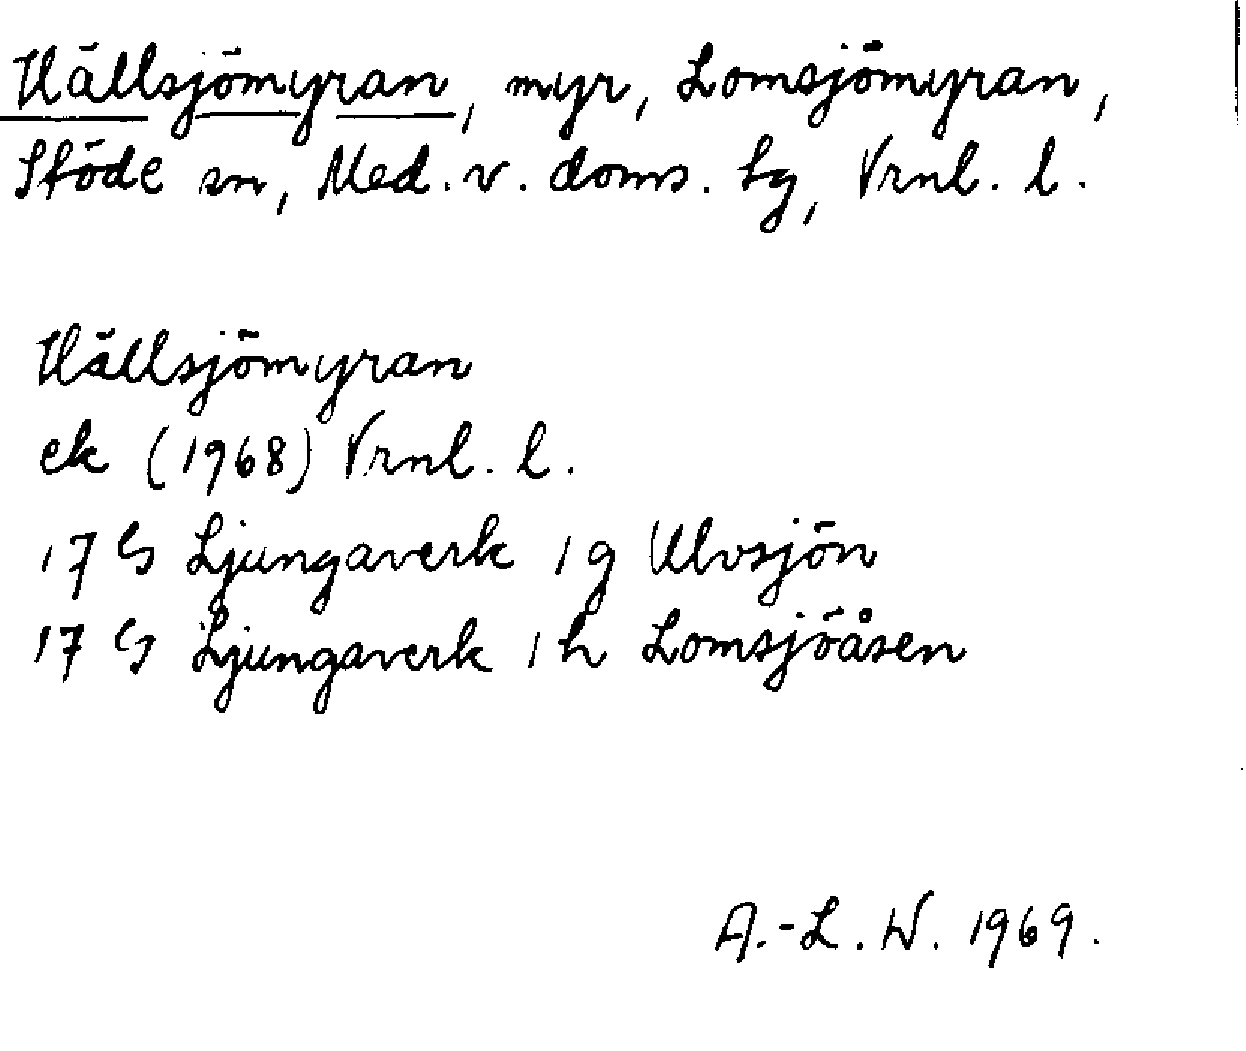 Hällsjömyran, myr, Lomsjömyran,
Stöde sn, Med. v. doms. tg, Vrnl. l.
Hällsjömyran
ek (1968) Vrnl. l.
17 G Ljungaverk 1 g Ulvsjön
17 G Ljungaverk 1 h Lomsjöåsen
A.-L. W. 1969.